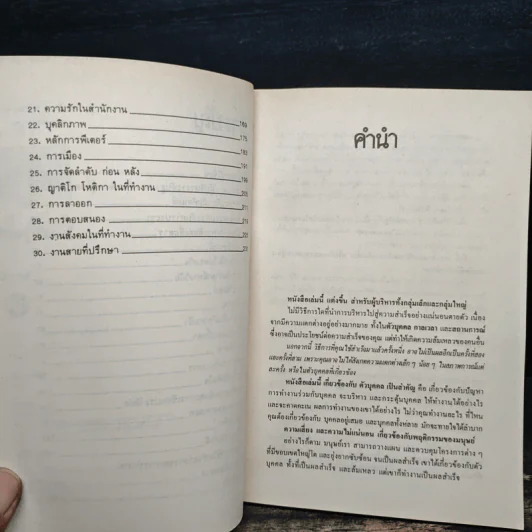 21. ความรักในสำนักงาน 169
22. บุคลิกภาพ 175
23. หลักการพีเตอร์
24. การเมือง 191
25. การจัดลำดับ ก่อน หลัง 196
26. ญาติโก โหติกา ในที่ทำงาน
27. การลาออก
28. การตอบสนอง
29. งานสังคมในที่ทำงาน
30. งานสายที่ปรึกษา
คำนำ
หนังสือเล่มนี้ แต่งขึ้น สำหรับผู้บริหารทั้งกลุ่มเล็กและกลุ่มใหญ่
ไม่มีวิธีการใดที่นำการบริหารไปสู่ความสำเร็จอย่างแน่นอนตายตัว เนื่อง
จากมีความแตกต่างอยู่อย่างมากมาย ทั้งในตัวบุคคล กาลเวลา และสถานการณ์
ซึ่งอาจเป็นประโยชน์ต่อความสำเร็จของคุณ แต่ทำให้เกิดความล้มเหลวของคนอื่น
นอกจากนี้ วิธีการที่คุณใช้สำเร็จมาแล้วครั้งหนึ่ง อาจไม่เป็นผลอีกเป็นครั้งที่สอง
และครั้งที่สาม เพราะคุณอาจไม่ได้สังเกตความแตกต่างเล็ก ๆ น้อย ๆ ในสภาพการณ์แต่
ละครั้ง หรือในตัวบุคคลที่เกี่ยวข้อง
หนังสือเล่มนี้ เกี่ยวข้องกับ ตัวบุคคล เป็นสำคัญ คือ เกี่ยวข้องกับปัญหา
การทำงานร่วมกับบุคคล จะบริหาร และกระตุ้นบุคคล ให้ทำงานได้อย่างไร
และจะคาดคะเน ผลการทำงานของเขาได้อย่างไร ไม่ว่าคุณทำงานอะไร ที่ไหน
คุณต้องเกี่ยวข้องกับ บุคคลอยู่เสมอ และบุคคลทั้งหลาย มักจะทายใจได้ลำบาก
ความเสี่ยง และความไม่แน่นอน เกี่ยวข้องกับพฤติกรรมของมนุษย์
อย่างไรก็ตาม มนุษย์เรา สามารถวางแผน และควบคุมโครงการต่าง ๆ
ที่มีขอบเขตใหญ่โต และยุ่งยากซับซ้อน จนเป็นผลสำเร็จ เขาได้เกี่ยวข้องกับตัว
บุคคล ทั้งที่เป็นผลสำเร็จ และล้มเหลว แต่เขาก็ทำงานเป็นผลสำเร็จ